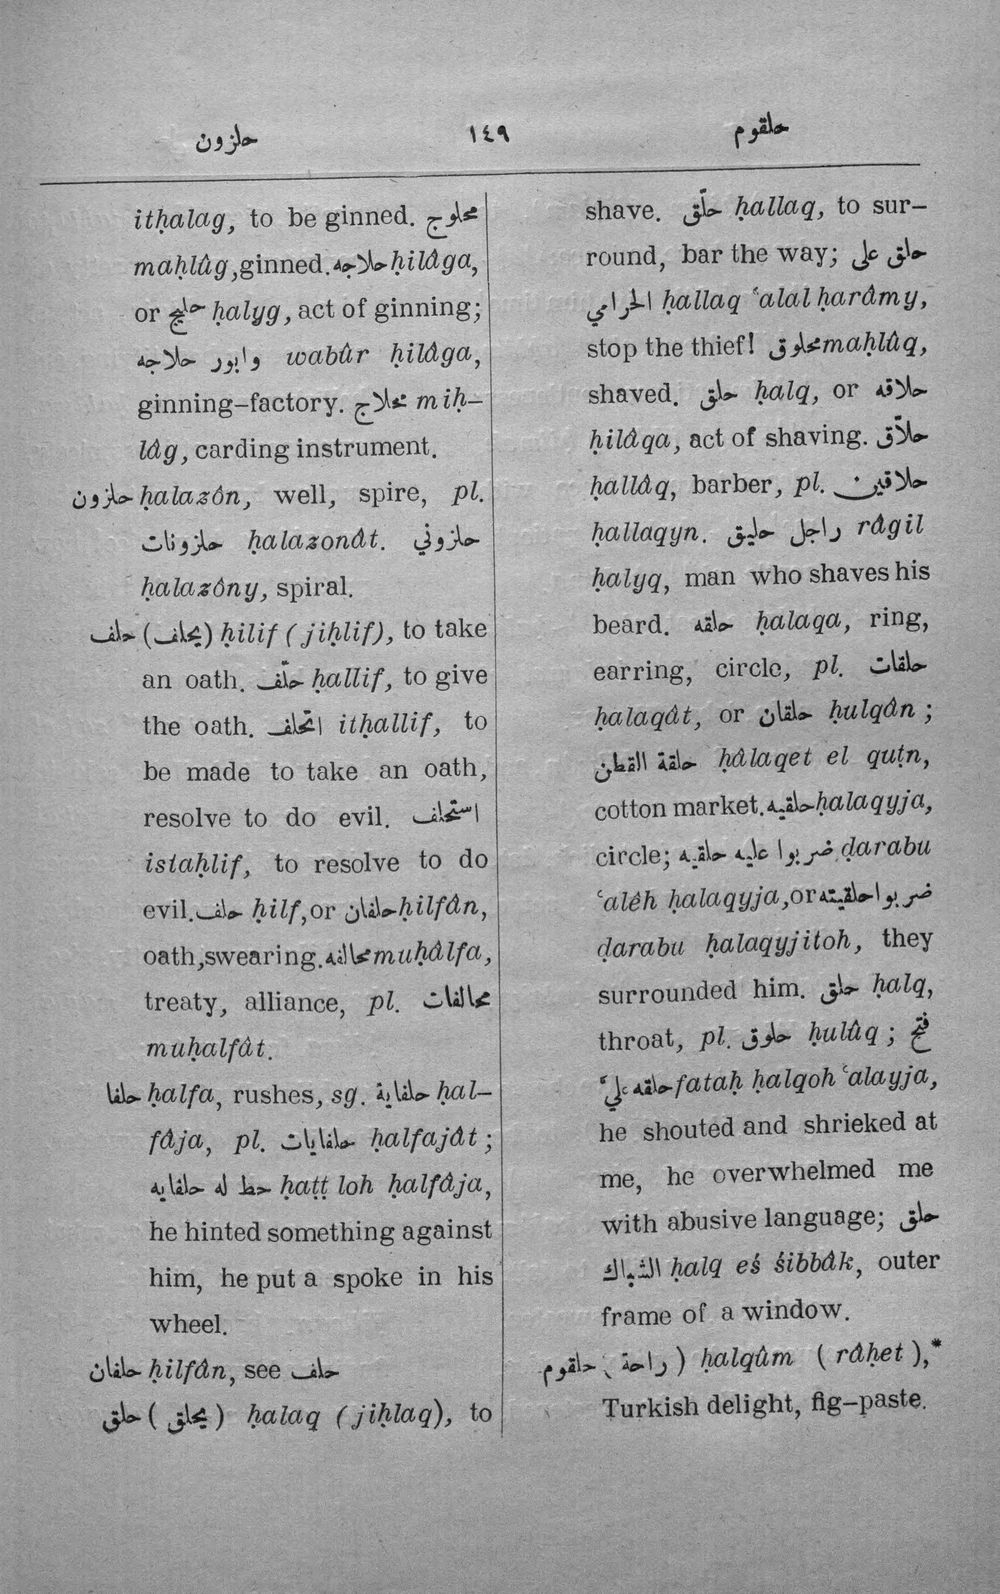 حلزون ١٤٩ حلقوم
itḥalag, to be ginned. محلوج
maḥlûg, ginned. حلاجه ḥilâga,
or حليج ḥalyg, act of ginning;
وابور حلاجه wabûr ḥilâga,
ginning-factory. محلاج miḥ-
lâg, carding instrument.
حلزون ḥalazôn, well, spire, pl.
حلزونات ḥalazonât. حلزوني
ḥalazôny, spiral.
حلف (يحلف) ḥilif (jiḥlif), to take
an oath. حلّف ḥallif, to give
the oath. اتحلف itḥallif, to
be made to take an oath,
resolve to do evil. استحلف
istaḥlif, to resolve to do
evil. حلف ḥilf, or حلفان ḥilfân,
oath, swearing. محالفه muḥâlfa,
treaty, alliance, pl. محالفات
muḥalfât.
حلفا ḥalfa, rushes, sg. حلفاية ḥal-
fâja, pl. حلفايات ḥalfajât;
حط له حلفايه ḥaṭṭ loh ḥalfâja,
he hinted something against
him, he put a spoke in his
wheel.
حلفان ḥilfân, see حلف
حلق (يحلق) ḥalaq (jiḥlaq), to
shave. حلّق ḥallaq, to sur-
round, bar the way; حلق على
الحرامي ḥallaq ʿalal ḥarâmy,
stop the thief! محلوق maḥlûq,
shaved. حلق ḥalq, or حلاقه
ḥilâqa, act of shaving. حلاّق
ḥallâq, barber, pl. حلاقين
ḥallaqyn. راجل حليق râgil
ḥalyq, man who shaves his
beard. حلقه ḥalaqa, ring,
earring, circle, pl. حلقات
ḥalaqât, or حلقان ḥulqân;
حلقة القطن ḥâlaqet el quṭn,
cotton market. حلقيه ḥalaqyja,
circle; ضربوا عليه حلقيه ḍarabu
ʿalêh ḥalaqyja, or ضربوا حلقيته
ḍarabu ḥalaqyjitoh, they
surrounded him. حلق ḥalq,
throat, pl. حلوق ḥulûq; فتح
حلقه عليّ fataḥ ḥalqoh ʿalayja,
he shouted and shrieked at
me, he overwhelmed me
with abusive language; حلق
الشباك ḥalq eś śibbâk, outer
frame of a window.
حلقوم (راحة) ḥalqûm (râḥet),*
Turkish delight, fig-paste.